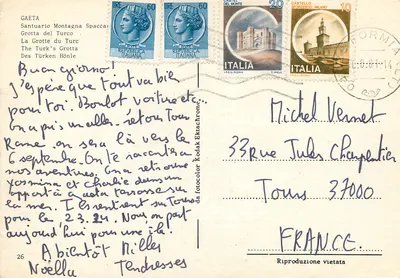 GAETA
Santuario Montagna Spacca
Grotta del Turco
La Grotte du Turc
The Turk's Grotta
Des Türken Hönle
Buongiorno!
J'espère que tout va bien
pour toi. Boulot voiture etc
On a pris un aller-retour Tours
Rome. on sera là vers le
6 septembre. On te racontera
nos aventures. On a retrouvé
Yasmina et Charlie dans un
appart à Gaeta terrasse sur
la mer. Ils rentrent sur Tours
pour le 23.24. Nous on part
aujourd'hui pour une île!
A bientôt Milles
Noëlla Tendresses
26
da fotocolor Kodak Ektachrome
20
ITALIA
10
ITALIA
FORMIA
Michel Vernet
33 Rue Jules Charpentier
Tours 37000
FRANCE.
Riproduzione vietata